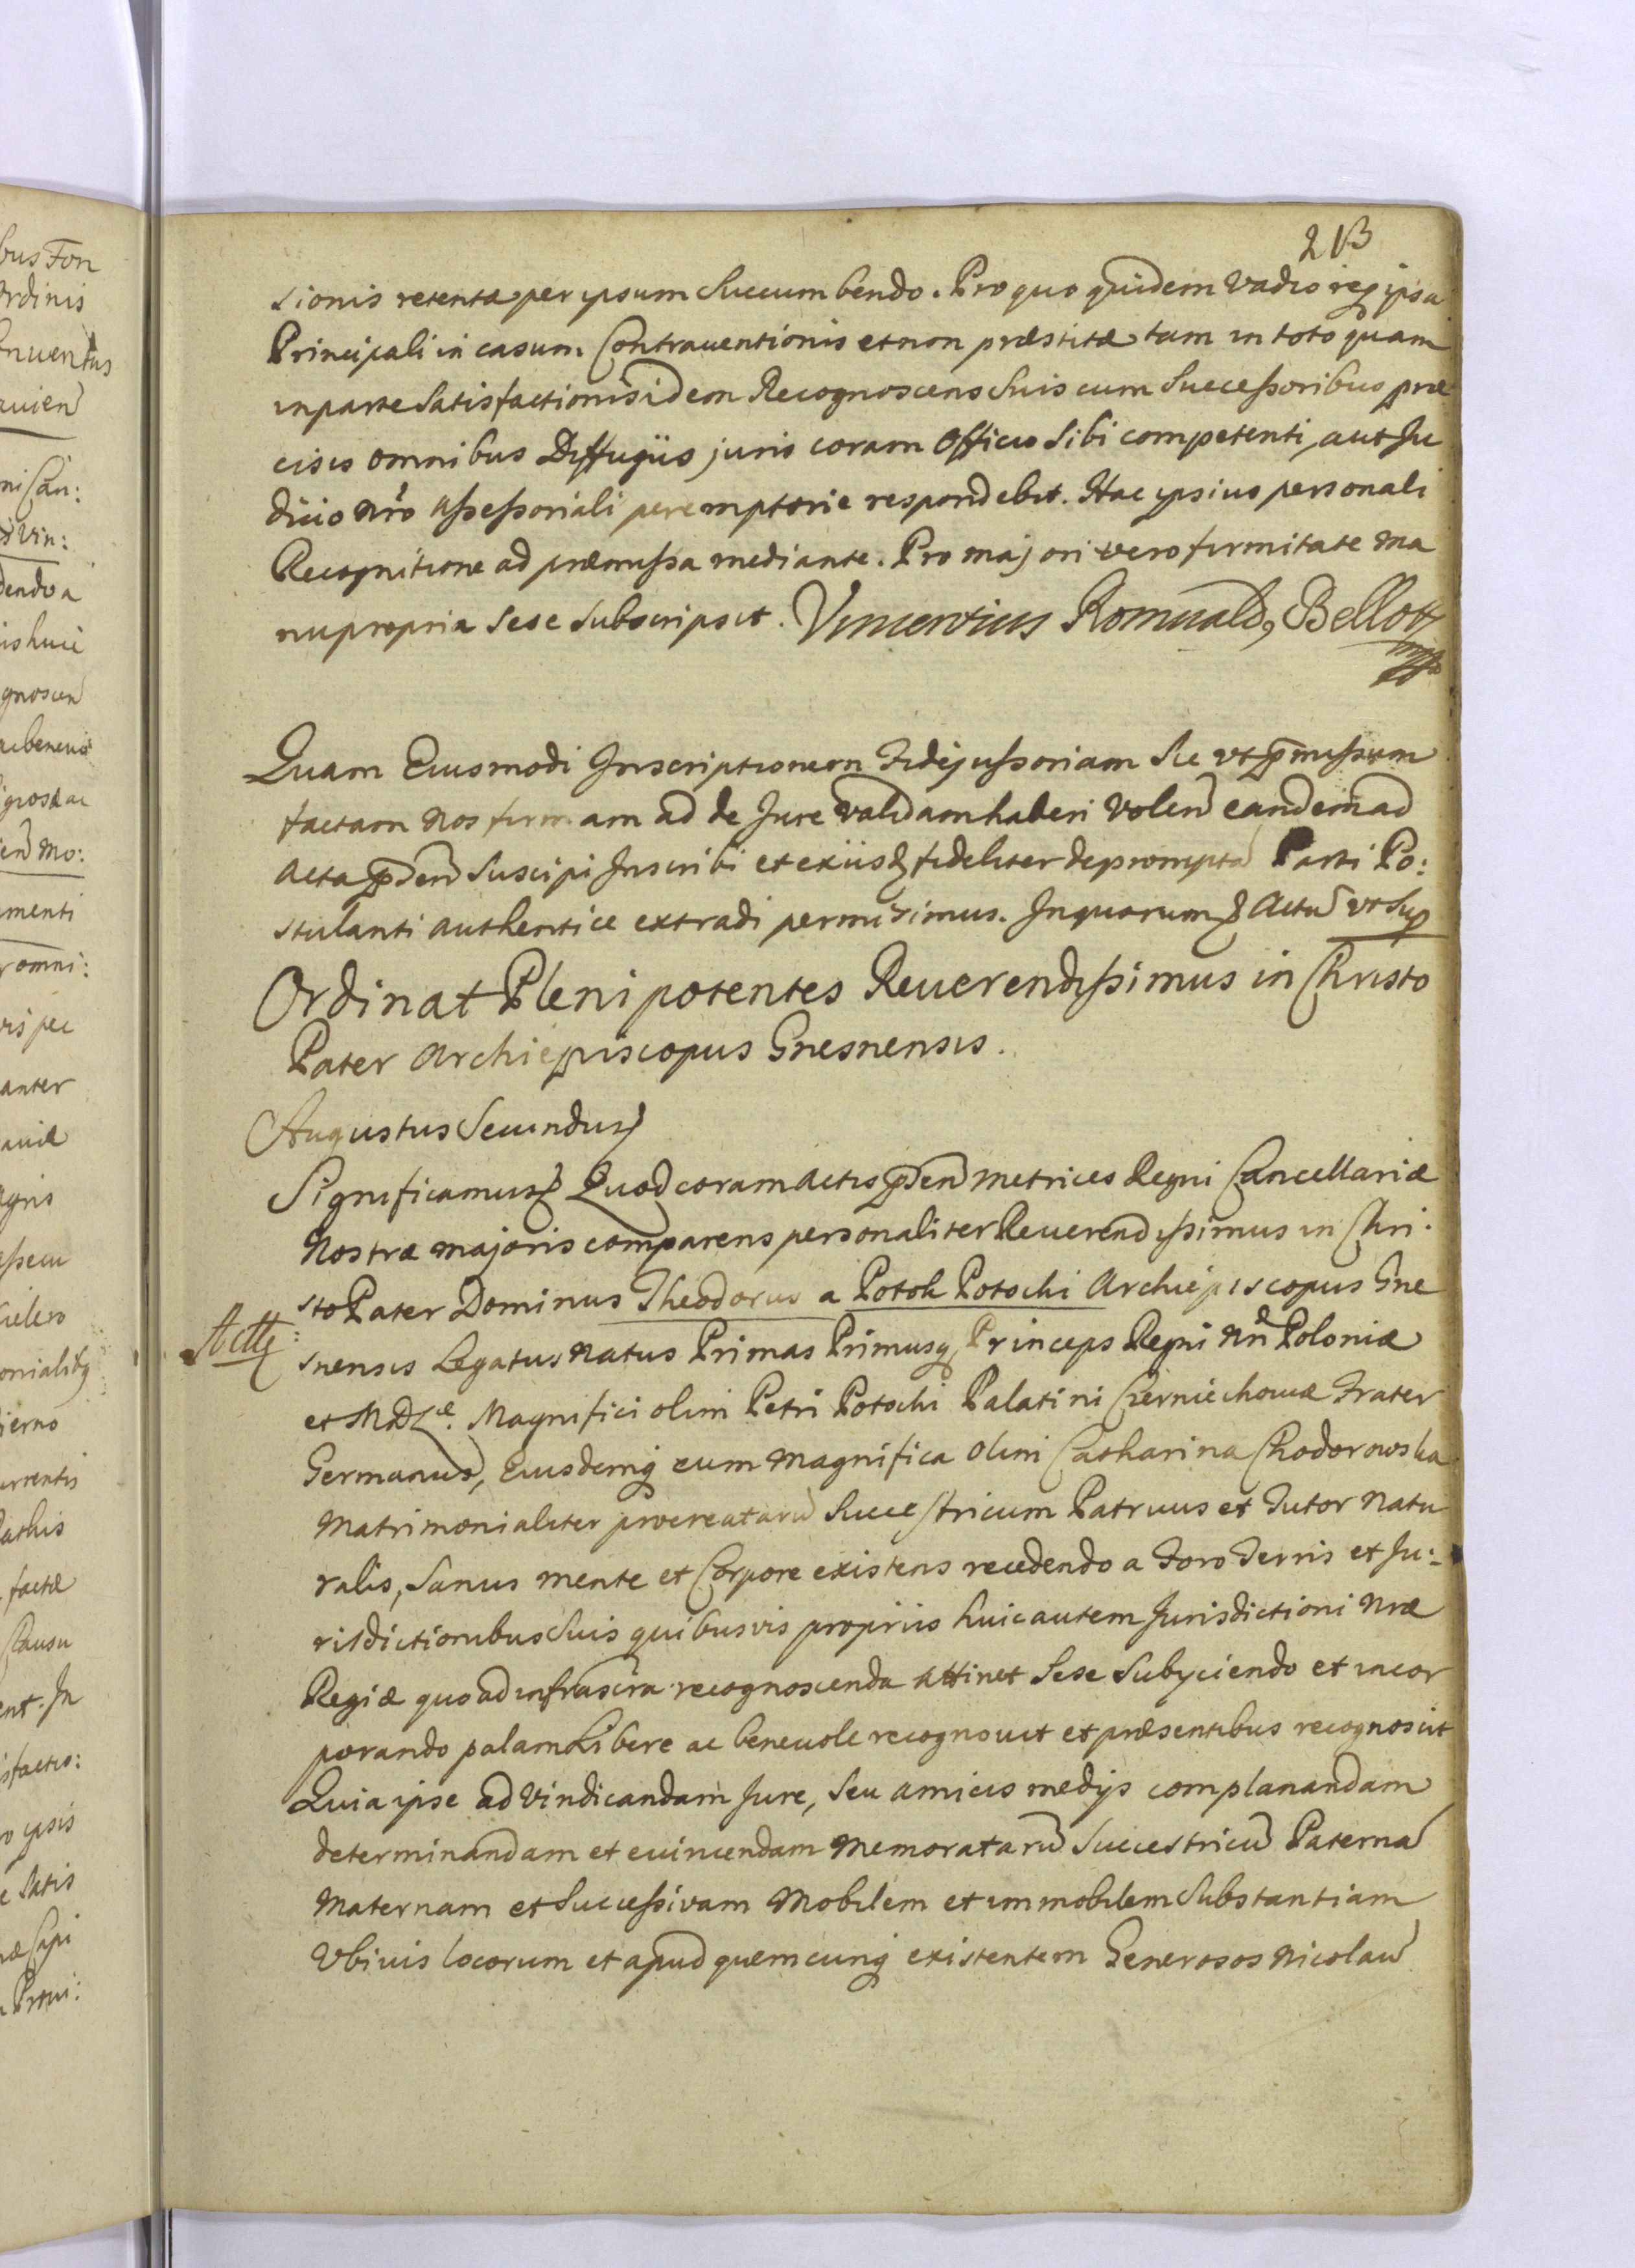 213
sionis retenta per ipsum Succumbendo. Pro quo quidem Vadio reqz ipsa
Principali in casum Contrauentionis et non præstitæ tam in toto quam
in parte Satisfactionis idem Recognoscens Suis cum Successoribus præ
cisis omnibus Diffugiis juris coram Officio Sibi competenti, aut Ju
dicio Nro Assessoriali peremptorie respondebit. Hac ipsius personali
Recognitione ad præmissa mediante. Pro majori vero firmitate Ma
nu propria Sese Subscripsit. Vincentius Romuald9 Bellott
mpp
Quam Eiusmodi Inscriptionem Fidejussoriam Sic vt pmissum
factam Nos firmam ad de Jure Validam haberi Volen eandem ad
Acta pden Suscipi Inscribi et ex iis fideliter depromptā Parti Po:
stulanti authentice extradi permisimus. In quorum Actū vt Sup
Ordinat Plenipotentes Reuerendissimus in Christo
Pater Archiepiscopus Gnesnensis.
Augustus Secundus
Significamus Quod coram Actis pden Metrices Regni Cancellariæ
Nostræ majoris comparens personaliter Reuerendissimus in Chri.
sto Pater Dominus Theodorus a Potok Potocki Archiepiscopus Gne
snensis Legatus Natus Primas Primusq Princeps Regni Poloniæ
et MDL. Magnifici olim Petri Potocki Palatini Czerniechouiæ Frater
Germanus, Eiusdemq cum Magnifica Olim Catharina Chodorowska
Matrimonialiter procreatarū Succestricum Patruus et Tutor Natu
ralis, Sanus mente et Corpore existens recedendo a Foro Terris et Ju:
risdictionibus Suis quibusvis propriis huic autem Jurisdictioni Nræ
Regiæ quo ad infrascra recognoscenda attinet Sese Subyciendo et incor
porando palam Libere ac beneuole recognouit et præsentibus recognoscit
Quia ipse ad Vindicandam Jure, Seu amicis medijs complanandam
determinandam et euincendam Memoratarū Succestricū Paternā
Maternam et Successivam Mobilem et immobilem Substantiam
Vbiuis locorum et apud quemcunq existentem Generosos Nicolaū